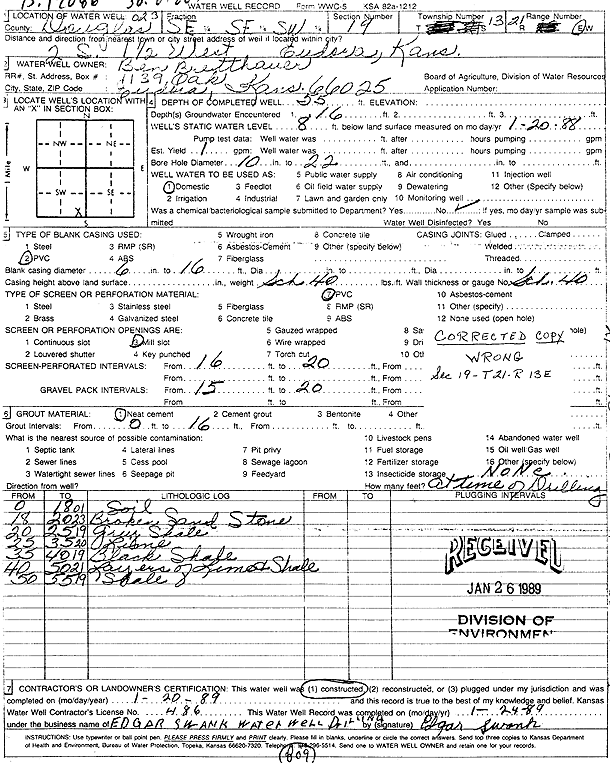 WATER WELL RECORD Form WWC-5 KSA 82a-1212
1 LOCATION OF WATER WELL Fraction Section Number Township Number Range Number
County: Douglas SE SE SW 19 T 13 21 E/W
Distance and direction from nearest town or city street address of well if located within city?
2 S. 1/2 West Eudora, Kans.
2 WATER WELL OWNER: Ben
RR#, St. Address, Box # : 1139 Oak Board of Agriculture, Division of Water Resources
City, State, ZIP Code : Eudora, Kans. 66025 Application Number:
3 LOCATE WELL'S LOCATION WITH 4 DEPTH OF COMPLETED WELL... 55 ft. ELEVATION:
AN "X" IN SECTION BOX:
N Depth(s) Groundwater Encountered 1. 16 ft. 2. ft. 3. ft.
WELL'S STATIC WATER LEVEL 8 ft. below land surface measured on mo/day/yr 1-20-88
NW NE Pump test data: Well water was ft. after hours pumping gpm
Est. Yield 1 gpm: Well water was ft. after hours pumping gpm
W E Bore Hole Diameter 10 in. to 22 ft., and in. to ft.
1 Mile
WELL WATER TO BE USED AS: 5 Public water supply 8 Air conditioning 11 Injection well
SW SE 1 Domestic 3 Feedlot 6 Oil field water supply 9 Dewatering 12 Other (Specify below)
X 2 Irrigation 4 Industrial 7 Lawn and garden only 10 Monitoring well
S Was a chemical/bacteriological sample submitted to Department? Yes....No ✓; If yes, mo/day/yr sample was sub-
mitted Water Well Disinfected? Yes No
5 TYPE OF BLANK CASING USED: 5 Wrought iron 8 Concrete tile CASING JOINTS: Glued Clamped
1 Steel 3 RMP (SR) 6 Asbestos-Cement 9 Other (specify below) Welded
2 PVC 4 ABS 7 Fiberglass Threaded
Blank casing diameter 6 in. to 16 ft., Dia in. to ft., Dia in. to ft.
Casing height above land surface in., weight Sch. 40 lbs./ft. Wall thickness or gauge No. Sch. 40
TYPE OF SCREEN OR PERFORATION MATERIAL: 7 PVC 10 Asbestos-cement
1 Steel 3 Stainless steel 5 Fiberglass 8 RMP (SR) 11 Other (specify)
2 Brass 4 Galvanized steel 6 Concrete tile 9 ABS 12 None used (open hole)
SCREEN OR PERFORATION OPENINGS ARE: 5 Gauzed wrapped 8 Sa hole)
1 Continuous slot 3 Mill slot 6 Wire wrapped 9 Dri
2 Louvered shutter 4 Key punched 7 Torch cut 10 Ot
CORRECTED COPY
WRONG
Sec 19-T21-R 13E
SCREEN-PERFORATED INTERVALS: From 16 ft. to 20 ft., From
From ft. to ft., From
GRAVEL PACK INTERVALS: From 15 ft. to 20 ft., From
From ft. to ft., From
6 GROUT MATERIAL: 1 Neat cement 2 Cement grout 3 Bentonite 4 Other
Grout Intervals: From 0 ft. to 16 ft., From ft. to ft., From ft. to ft.
What is the nearest source of possible contamination: 10 Livestock pens 14 Abandoned water well
1 Septic tank 4 Lateral lines 7 Pit privy 11 Fuel storage 15 Oil well/Gas well
2 Sewer lines 5 Cess pool 8 Sewage lagoon 12 Fertilizer storage 16 Other (specify below)
3 Watertight sewer lines 6 Seepage pit 9 Feedyard 13 Insecticide storage NONE
Direction from well? How many feet? at time of Drilling
FROM TO LITHOLOGIC LOG FROM TO PLUGGING INTERVALS
0 18 01 Soil
18 20 23 Broken Sand Stone
20 25 19 Shale
25 35 20
35 40 19 Black Shale
40 50 21 Layers of Lime & Shale
50 55 19 Shale
RECEIVED
JAN 26 1989
DIVISION OF
ENVIRONMENT
7 CONTRACTOR'S OR LANDOWNER'S CERTIFICATION: This water well was (1) constructed, (2) reconstructed, or (3) plugged under my jurisdiction and was
completed on (mo/day/year) 1-20-89 and this record is true to the best of my knowledge and belief. Kansas
Water Well Contractor's License No. 486 This Water Well Record was completed on (mo/day/yr) 1-24-89
under the business name of EDGAR SWANK WATER WELL DRILLING by (signature) Edgar Swank
INSTRUCTIONS: Use typewriter or ball point pen. PLEASE PRESS FIRMLY and PRINT clearly. Please fill in blanks, underline or circle the correct answers. Send top three copies to Kansas Department
of Health and Environment, Bureau of Water Protection, Topeka, Kansas 66620-7320. Telephone 296-5514. Send one to WATER WELL OWNER and retain one for your records.
(809)